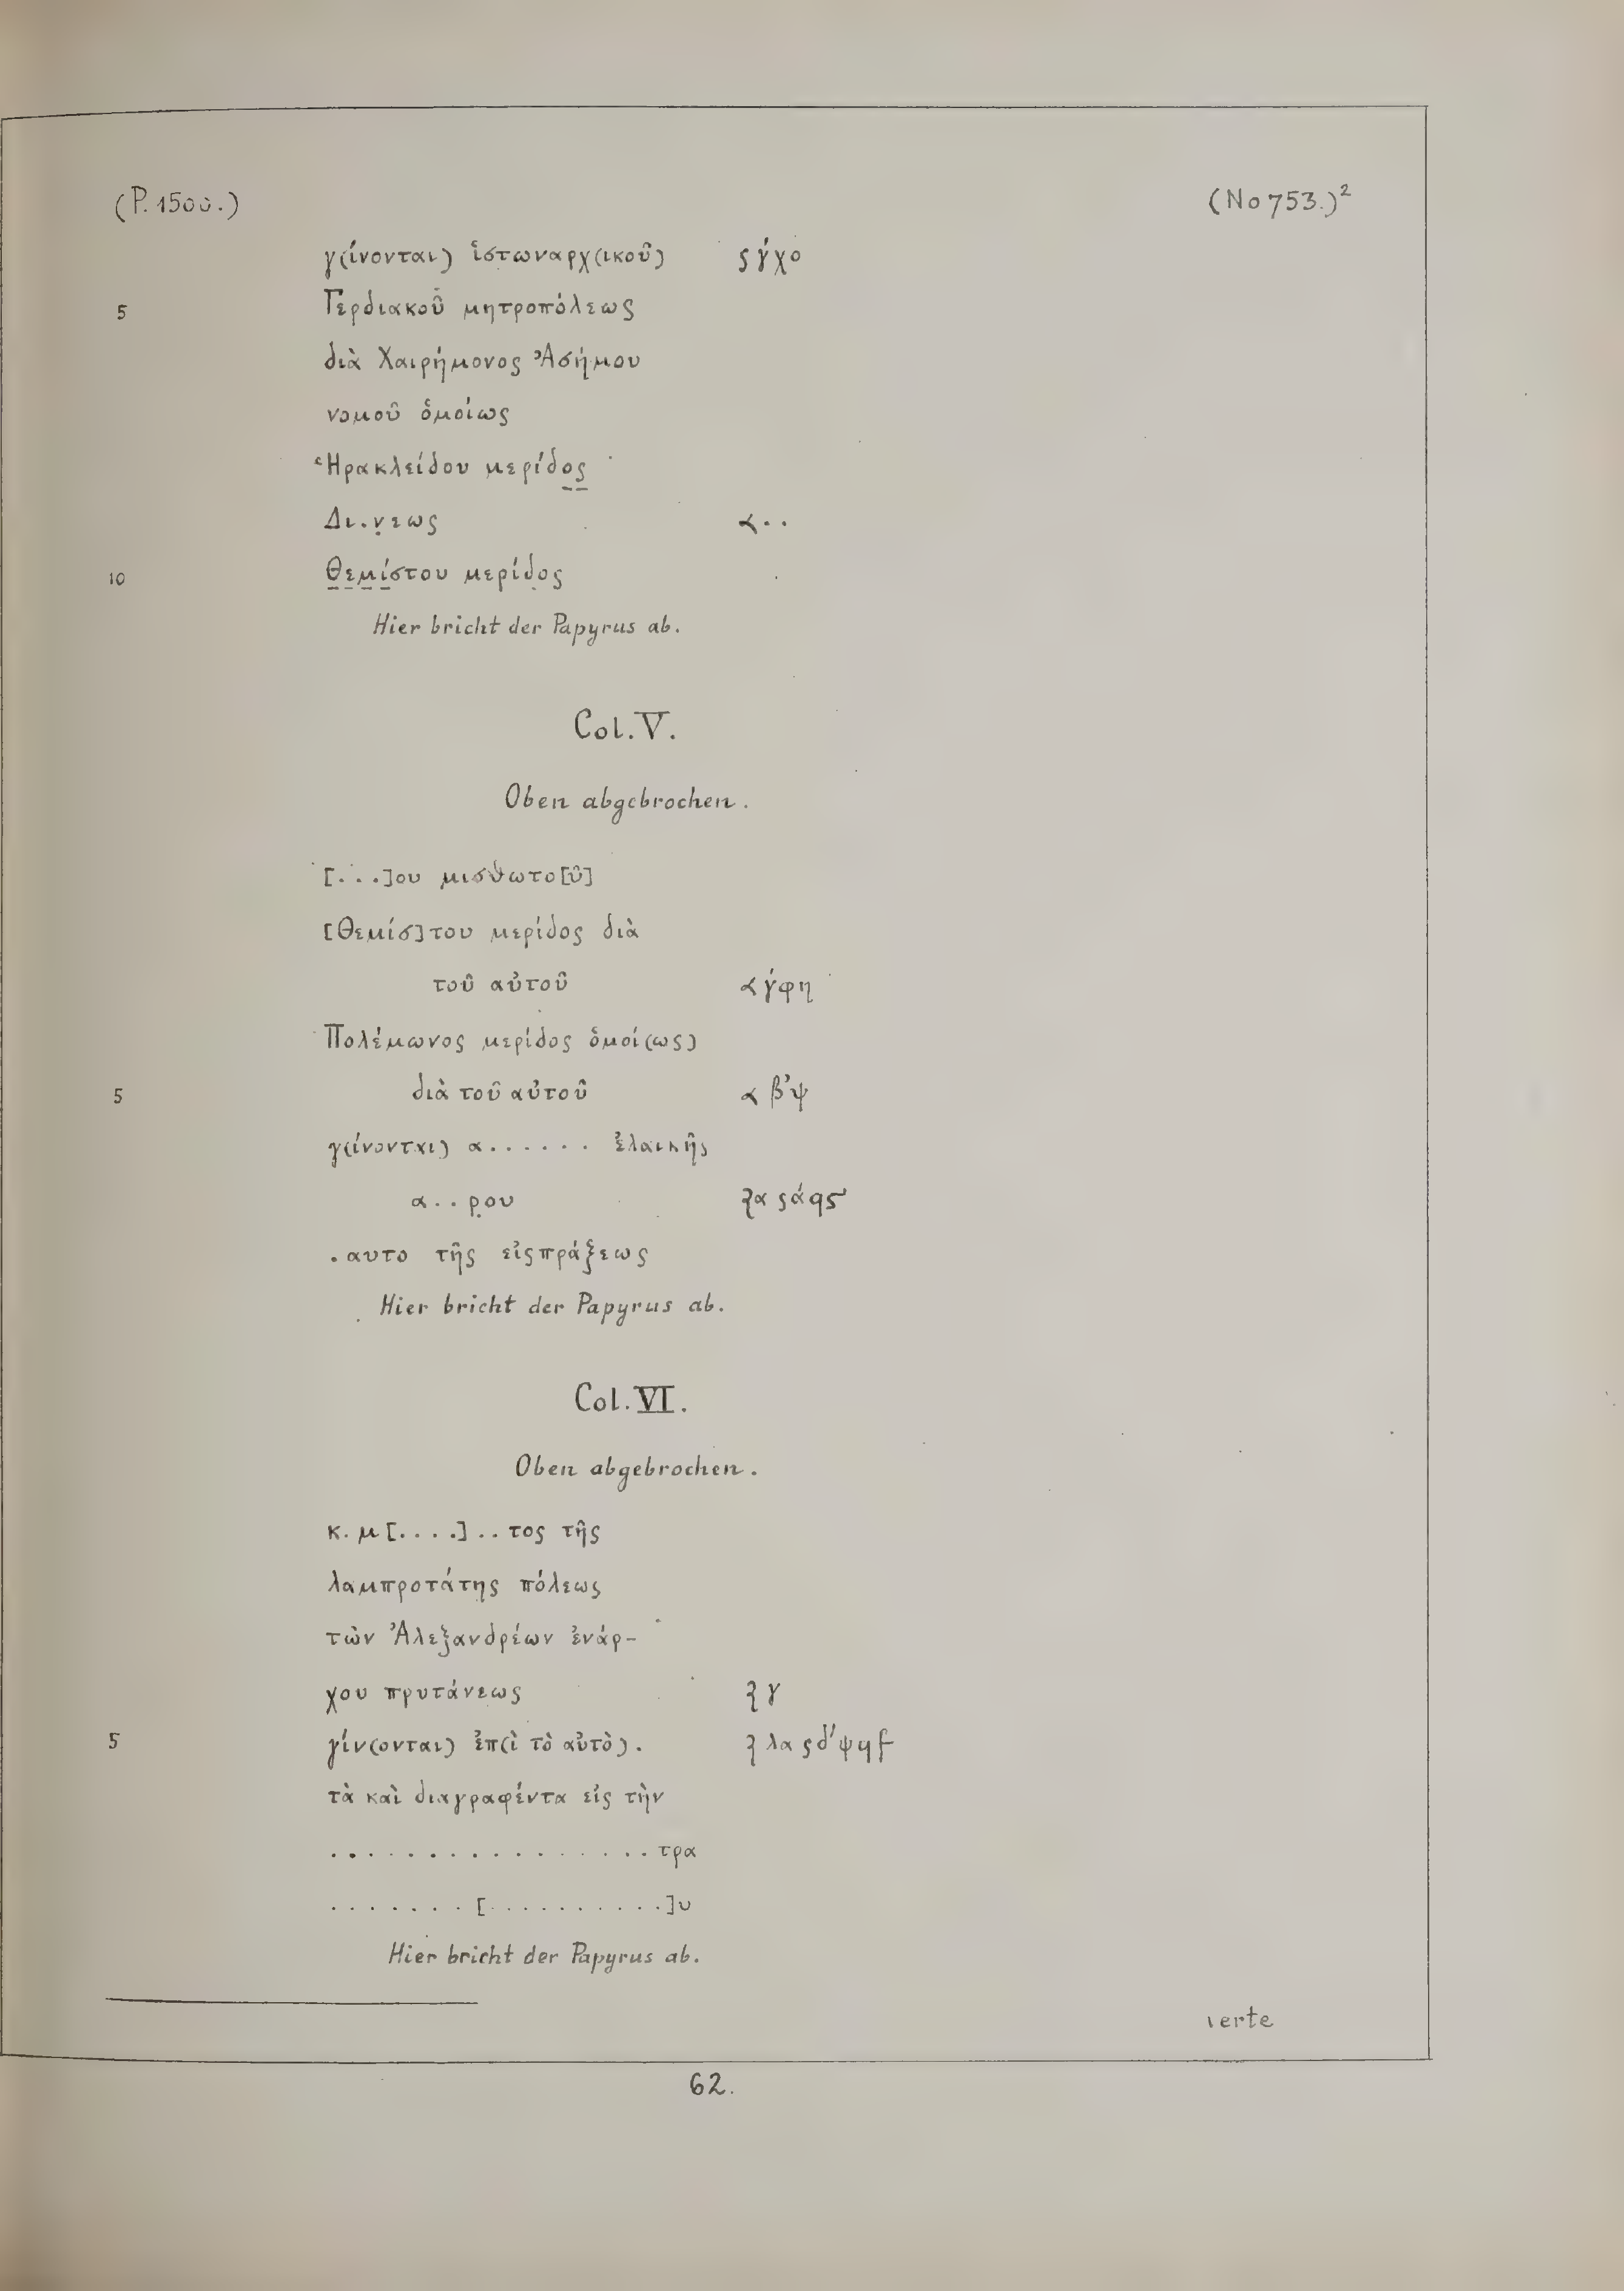 (P. 1500.) (No 753.)²
γ(ίνονται) ἱστωναρχ(ικοῦ) ϛ γ́χο
5 Γερδιακοῦ μητροπόλεως
διὰ Χαιρήμονος Ἀσήμου
νομοῦ ὁμοίως
Ἡρακλείδου μερίδος
Δι.ν̣εως 𐅽..
10 Θεμίστου μερίδος
Hier bricht der Papyrus ab.
Col. V.
Oben abgebrochen.
[. . .]ου μισθωτο[ῦ]
[Θεμίσ]του μερίδος διὰ
τοῦ αὐτοῦ γ́φη
Πολέμωνος μερίδος ὁμοί(ως)
5 διὰ τοῦ αὐτοῦ β'ψ
γ(ίνονται) α . . . . . . ἐλαικῆς
α . . ρ̣ου α ϛ ά
. αυτο τῆς εἰςπράξεως
Hier bricht der Papyrus ab.
Col. VI.
Oben abgebrochen.
κ. μ [. . . .] . . τος τῆς
λαμπροτάτης πόλεως
τῶν Ἀλεξανδρέων ἐνάρ-
χου πρυτάνεως γ
5 γίν(ονται) ἐπ(ὶ τὸ αὐτὸ). λα ϛ δ'ψ
τὰ καὶ διαγραφέντα εἰς τὴν
. . . . . . . . . . . . . . . . τρα
. . . . . . . [. . . . . . . . . .]υ
Hier bricht der Papyrus ab.
verte
62.